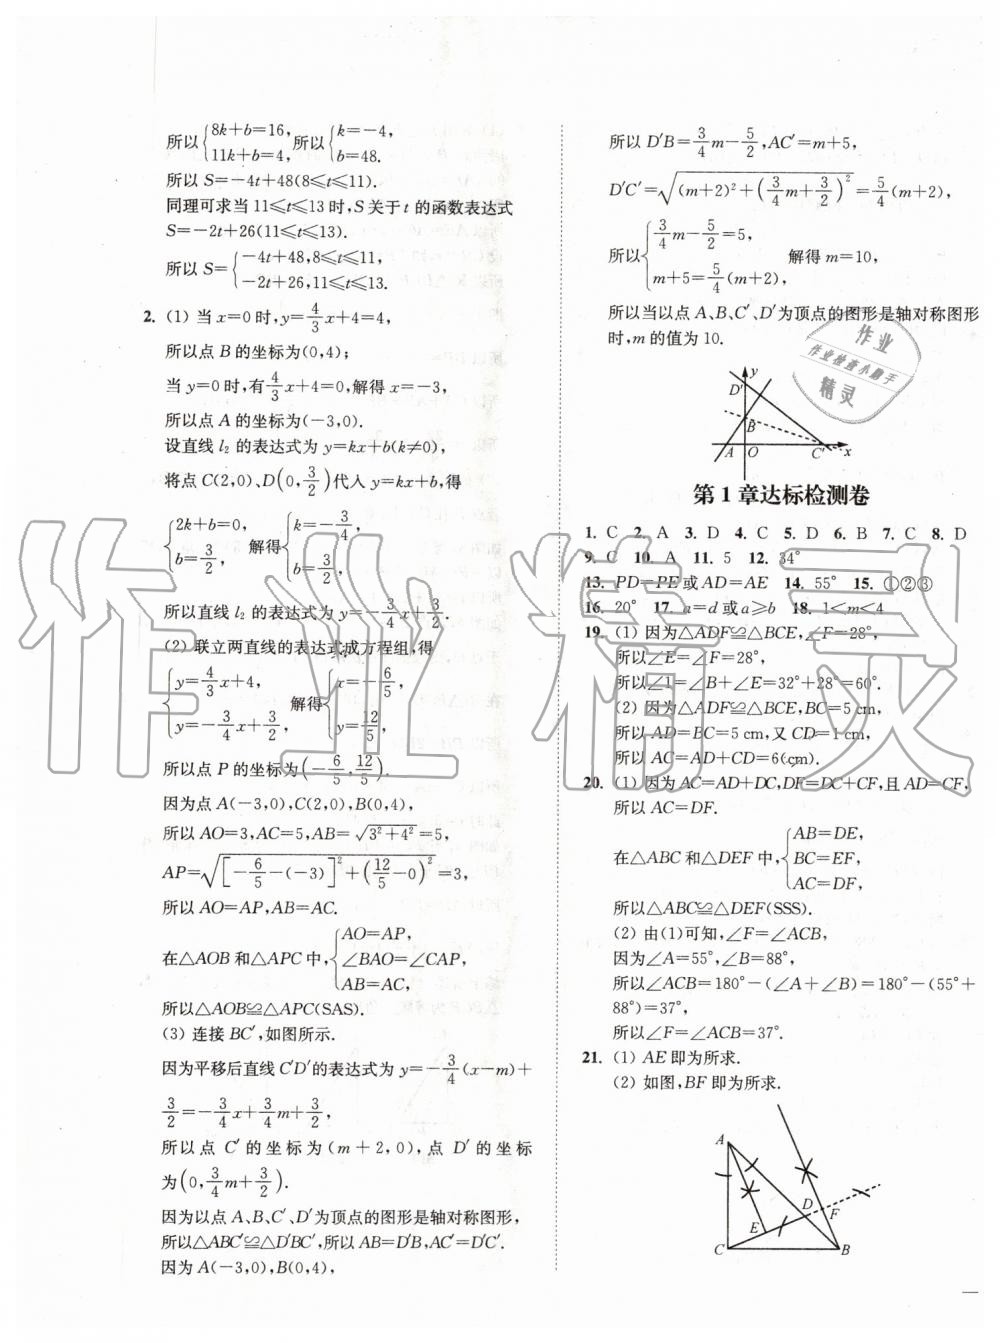 所以{8k+b=16, 11k+b=4, 所以{k=-4, b=48.
所以 S=-4t+48(8⩽t⩽11).
同理可求当 11⩽t⩽13 时,S 关于 t 的函数表达式
S=-2t+26(11⩽t⩽13).
所以 S={-4t+48,8⩽t⩽11, -2t+26,11⩽t⩽13.
2. (1) 当 x=0 时,y=4/3x+4=4,
所以点 B 的坐标为(0,4);
当 y=0 时,有4/3x+4=0,解得 x=-3,
所以点 A 的坐标为(-3,0).
设直线 l₂ 的表达式为 y=kx+b(k≠0),
将点 C(2,0)、D(0,3/2)代入 y=kx+b,得
{2k+b=0, b=3/2, 解得{k=-3/4, b=3/2,
所以直线 l₂ 的表达式为 y=-3/4x+3/2.
(2) 联立两直线的表达式成方程组,得
{y=4/3x+4, y=-3/4x+3/2, 解得{x=-6/5, y=12/5,
所以点 P 的坐标为(-6/5,12/5).
因为点 A(-3,0),C(2,0),B(0,4),
所以 AO=3,AC=5,AB=√(3²+4²)=5,
AP=√([-6/5-(-3)]²+(12/5-0)²)=3,
所以 AO=AP,AB=AC.
在△AOB 和△APC 中,{AO=AP, ∠BAO=∠CAP, AB=AC,
所以△AOB≌△APC(SAS).
(3) 连接 BC′,如图所示.
因为平移后直线 C′D′的表达式为 y=-3/4(x-m)+
3/2=-3/4x+3/4m+3/2,
所以点 C′ 的坐标为(m+2,0),点 D′ 的坐标
为(0,3/4m+3/2).
因为以点 A、B、C′、D′为顶点的图形是轴对称图形,
所以△ABC′≌△D′BC′,所以 AB=D′B,AC′=D′C′.
因为 A(-3,0),B(0,4),
所以 D′B=3/4m-5/2,AC′=m+5,
D′C′=√((m+2)²+(3/4m+3/2)²)=5/4(m+2),
所以{3/4m-5/2=5, m+5=5/4(m+2), 解得 m=10,
所以当以点 A、B、C′、D′为顶点的图形是轴对称图形
时,m 的值为 10.
y
D′
B
A O C′ x
第 1 章达标检测卷
1. C 2. A 3. D 4. C 5. D 6. B 7. C 8. D
9. C 10. A 11. 5 12. 34°
13. PD=PE或AD=AE 14. 55° 15. ①②③
16. 20° 17. a=d 或 a⩾b 18. 1<m<4
19. (1) 因为△ADF≌△BCE,∠F=28°,
所以∠E=∠F=28°,
所以∠1=∠B+∠E=32°+28°=60°.
(2) 因为△ADF≌△BCE,BC=5 cm,
所以 AD=BC=5 cm,又 CD=1 cm,
所以 AC=AD+CD=6(cm).
20. (1) 因为 AC=AD+DC,DF=DC+CF,且 AD=CF,
所以 AC=DF.
在△ABC 和△DEF 中,{AB=DE, BC=EF, AC=DF,
所以△ABC≌△DEF(SSS).
(2) 由(1)可知,∠F=∠ACB,
因为∠A=55°,∠B=88°,
所以∠ACB=180°-(∠A+∠B)=180°-(55°+
88°)=37°,
所以∠F=∠ACB=37°.
21. (1) AE 即为所求.
(2) 如图,BF 即为所求.
A
D F
E
C B
作业
作业检查小助手
精灵
作业精灵